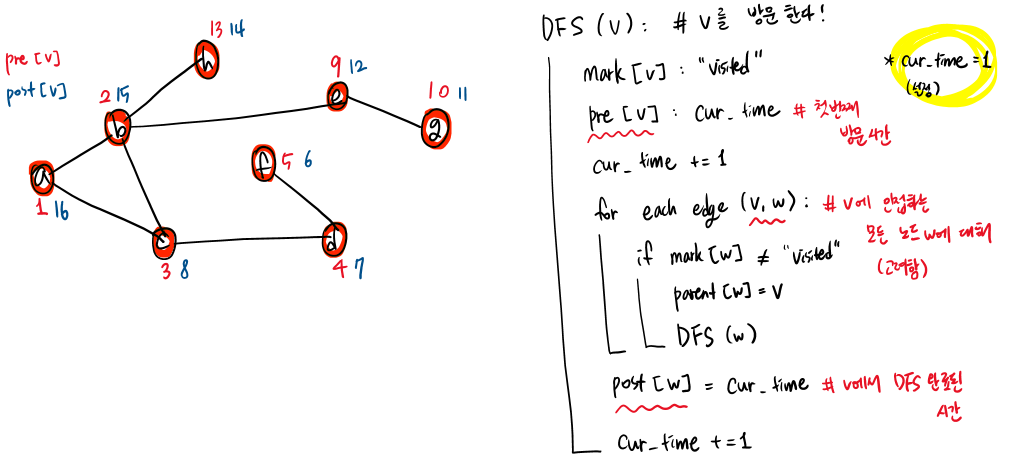 pre [v]
post [v]
13 14
h
9 12
e
10 11
g
2 15
b
f
5 6
a
1 16
c
3 8
d
4 7
DFS (V) : # V를 방문 한다!
mark [v] : "visited"
* cur_time = 1
(설정)
pre [v] : cur_time # 첫번째
방문시간
cur_time += 1
for each edge (v, w) : # v에 인접하는
모든 노드 w에 대해
(고려함)
if mark [w] ≠ "visited"
parent [w] = V
DFS (w)
post [w] = cur_time # v에서 DFS 완료된
시간
cur_time += 1